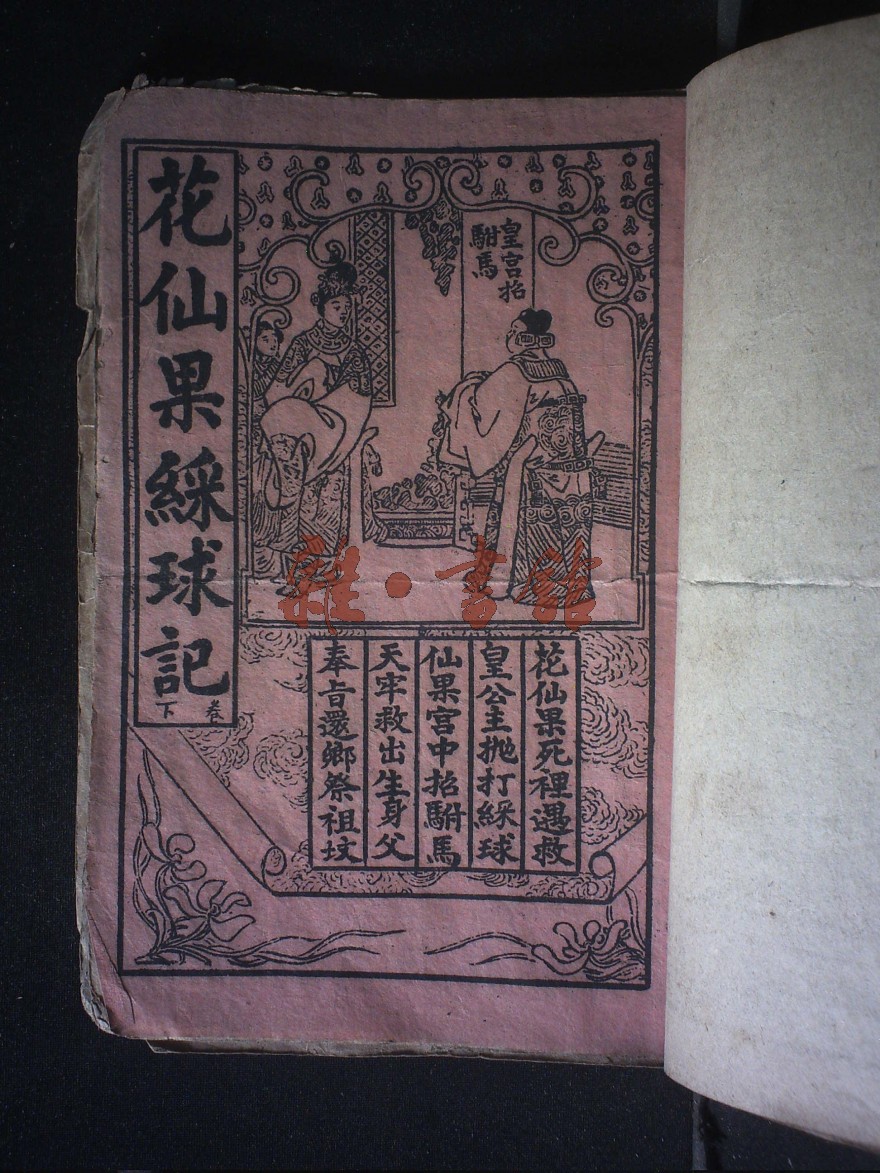 花仙果綵球記
卷下
皇宮招
駙馬
花仙果死裡遇救
皇公主抛打綵球
仙果宮中招駙馬
天牢救出生身父
奉旨還鄉祭祖坟
雜·書館